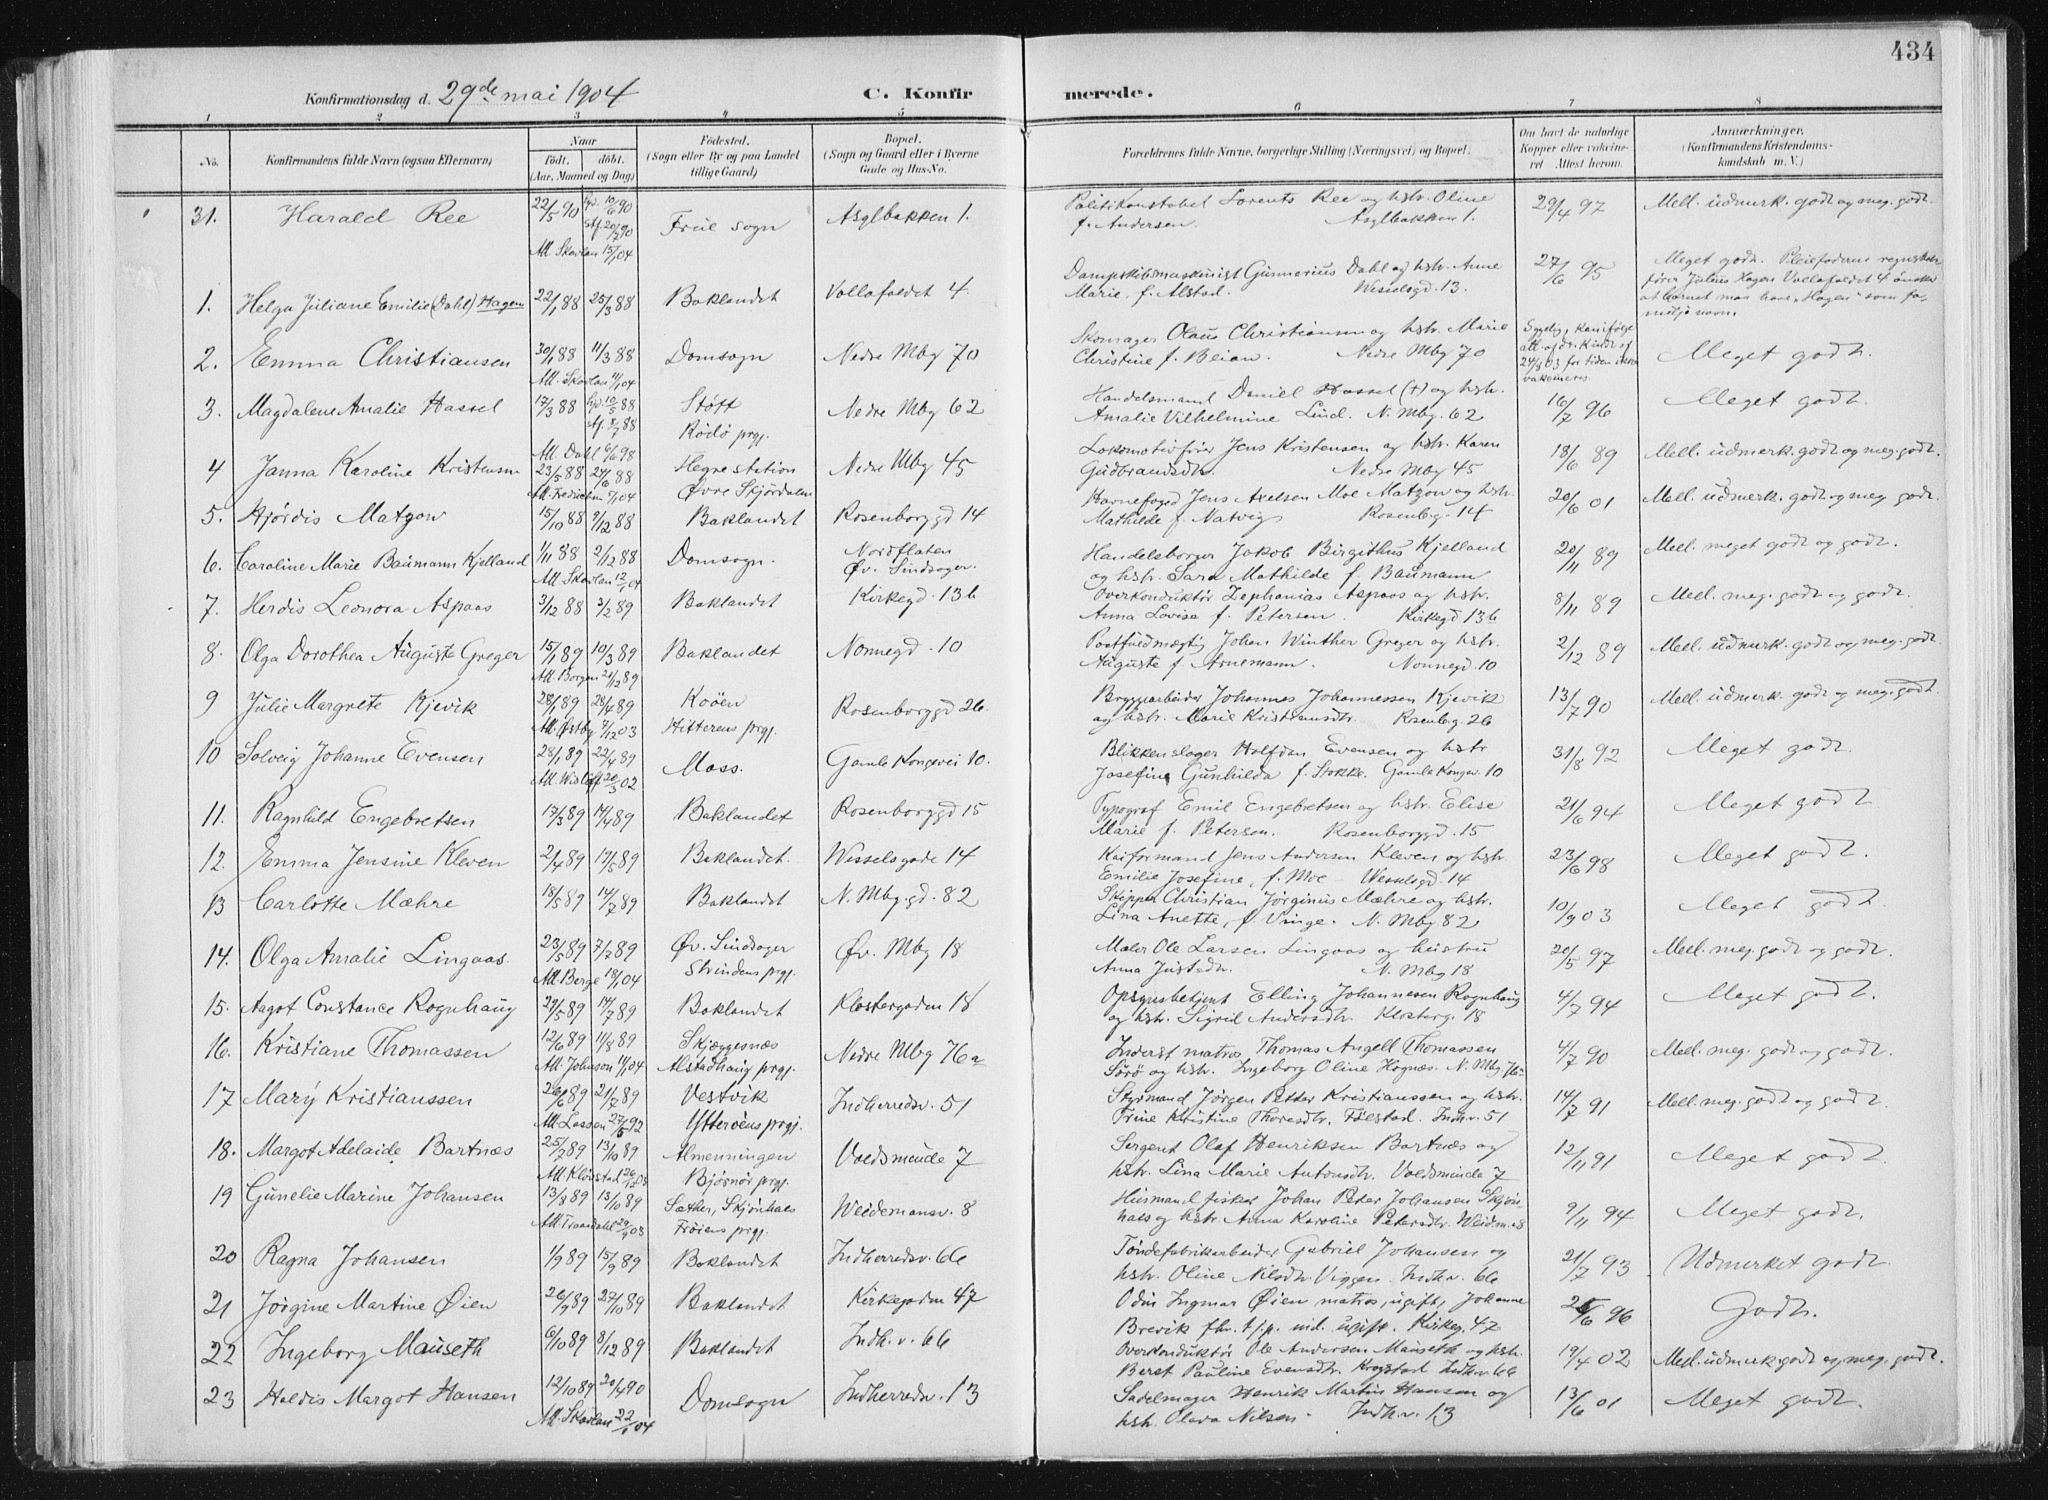 434
Konfirmationsdag d. 29de mai 1904
C. Konfirmerede.
1 2 3 4 5 6 7 8
No.
Konfirmandens fulde Navn (ogsaa Efternavn)
Naar
födt. döbt.
(Aar, Maaned og Dag)
Födested.
(Sogn eller By og paa Landet
tillige Gaard)
Bopæl.
(Sogn og Gaard eller i Byerne
Gade og Hus-No.
Forældrenes fulde Navne, borgerlige Stilling (Næringsvei) og Bopæl.
Om havt de naturlige
Kopper eller vakcineret
Attest herom.
Anmærkninger.
(Konfirmandens Kristendomskundskab
m. V.)
31. Harald Ree 22/5 90 hjd. 10/6 90 Frue sogn Asylbakken 1. Politikonstabel Lorents Ree og hstr. Oline 29/4 97 Mell. udmerk. godt og meg. godt.
stf. 20/7 90 f. Andersen. Asylbakken 1.
Att. Skavlan 15/1 04
1. Helga Juliane Emilie (Dahl) Hagen 22/1 88 25/3 88 Baklandet Vollafaldet 4 Dampskibsmaskinist Gunnerius Dahl og hstr. Anne 27/6 95 Meget godt. Pleiefaderen regnskabs
Marie, f. Alstad. Wesselsgd. 13. fører Julius Hagen Vollafaldet 4 ønsker
at barnet maa have "Hagen" som fa-
milienavn.
2. Emma Christiansen 30/1 88 11/3 88 Domsogn Nedre Mbg 70 Skomager Olaus Christiansen og hstr. Marie Sygelig, kan ifølge Meget godt.
Att. Skavlan 11/1 04 Christine f. Beian. Nedre Mbg 70 att. af dr. Kindt af
24/3 03 for tiden ikke
vakcineres
3. Magdalene Amalie Hassel 17/3 88 hjd. 10/5 88 Støtt Nedre Mbg 62 Handelsmand Daniel Hassel (+) og hstr. 16/7 96 Meget godt.
stf. 8/7 88 Rødø prgj. Amalie Vilhelmine Lind. N. Mbg. 62
Att. Dahl 6/6 98
4 Janna Karoline Kristensen 23/5 88 24/6 88 Hegre station Nedre Mbg 45 Lokomotivfører Jens Kristensen og hstr. Karen 18/6 89 Mell. udmerk. godt og meg. godt.
Øvre Stjørdalen Gudbrandsdtr. Nedre Mbg 45
5. Hjørdis Matzow 15/10 88 9/12 88 Baklandet Rosenborggd 14 Havnefoged Jens Axelsen Moe Matzow og hstr. 20/6 01 Mell. udmerk. godt og meg godt.
Mathilde f. Natvig Rosenbg. 14
6. Caroline Marie Baumann Kjelland 1/11 88 2/12 88 Domsogn. Nordflaten Handelsborger Jakob Birgithus Kjelland 20/11 89 Mell. meget godt og godt.
Att. Skavlan 12/1 04 Øv. Sindsager. og hstr. Sara Mathilde f. Baumann
7. Herdis Leonora Aspaas 3/12 88 3/2 89 Baklandet Kirkegd. 13b Overkonduktør Zephanias Aspaas og hstr. 8/11 89 Mell. meg. godt og godt.
Anna Lovise f. Petersen. Kirkegd 13b
8. Olga Dorothea Auguste Greger 15/1 89 10/3 89 Baklandet Nonnegd. 10 Postfuldmægtig Johan Winther Greger og hstr. 2/12 89 Mell. udmerk. godt og meg. godt.
Att. Borgen 21/12 89 Auguste f. Arnemann. Nonnegd. 10
9 Julie Margrete Kjevik 28/1 89 28/4 89 Koöen Rosenborggd 26 Bryggarbeider Johannes Johannessen Kjevik 13/7 90 Mell. udmerk. godt og meg. godt.
Att. Østby 7/12 03 Hitterens prgj. og hstr. Marie Kristensdtr. Rosenbg. 26
10 Solveig Johanne Evensen 28/1 89 22/4 89 Moss. Gamle Kongevei 10. Blikkenslager Halfdan Evensen og hstr 31/8 92 Meget godt.
Att. Wisløff 20/3 02 Josefine Gunhilda f. Stokke. Gamle Kongev. 10
11. Ragnhild Engebretsen 17/3 89 14/4 89 Baklandet Rosenborggd 15 Typograf Emil Engebretsen og hstr. Elise 21/6 94 Meget godt.
Marie f. Peterson. Rosenborggd. 15
12. Emma Jensine Kleven 2/4 89 19/5 89 Baklandet. Wesselsgade 14 Kaiformand Jens Andersen Kleven og hstr 23/6 98 Meget godt.
Emilie Josefine, f. Moe - Wesselsgd. 14
13 Carlotte Mæhre 18/5 89 14/7 89 Baklandet N. Mbg. gd. 82 Skipper Christian Jørginus Mæhre og hstr. 10/9 03 Meget godt.
Lina Anette, f. Vinge. N. Mbg 82
14. Olga Amalie Lingaas. 23/5 89 7/7 89 Øv. Sindsager Øv. Mbg 18 Maler Ole Larsen Lingaas og hustru 20/5 97 Mell. meg. godt og godt.
Att. Berge 18/1 04 Strindens prgj. Anna Justsdtr. N. Mbg 18
15. Aagot Constance Rognhaug 29/5 89 14/7 89 Baklandet Klostergaden 18 Opsynsbetjent Elling Johannesen Rognhaug 4/7 94 Meget godt.
og hstr. Sigrid Andersdtr. Klosterg. 18
16. Kristiane Thomassen 12/6 89 11/8 89 Skjæggesnæs Nedre Mbg 76a Inderst matros Thomas Angell Thomassen 4/7 90 Mell. meg. godt og godt.
Att. Johnson 14/1 04 Alstadhaug prgj. Sørø og hstr. Ingeborg Oline Høgnes. N. Mbg 76a
17 Mary Kristianssen 26/6 89 21/7 89 Vestvik Indherredsv. 51 Styrmand Jørgen Petter Kristianssen og hstr. 14/7 91 Mell. meg. godt og godt.
Att. Lassen 27/5 92 Ytterøens prgj. Trine Kristine Thoresdtr. Følstad. Indh.v. 51
18. Margot Adelaide Bartnæs 25/7 89 13/10 89 Almenningen Voldsminde 7 Sergent Olaf Henriksen Bartnæs og 12/11 91 Meget godt.
Bjørnør prgj. hstr. Lina Marie Antonsdtr. Voldsminde 7
19 Gunelie Marine Johansen 13/8 89 13/10 89 Sæther, Skjønhals Weidemansv. 8 Husmand fisker Johan Peter Johansen Skjøn- 9/11 94 Meget godt.
Frøiens prgj. hals og hstr. Anna Karoline Petersdtr. Weidm. 8
20 Ragna Johansen 1/9 89 15/9 89 Baklandet Indherredsv. 66 Tøndefabrikarbeider Gabriel Johansen og 21/7 93 Udmerket godt.
hstr. Oline Nilsdtr. Viggen. Indh.v. 66
21 Jørgine Martine Øien 26/9 89 27/10 89 Baklandet Kirkegaden 47 Odin Ingmar Øien matros, ugift, Johanne 96 Godt.
Brevik ugift. Kirkeg. 47
22 Ingeborg Mauseth 6/10 89 8/12 89 Baklandet Indh. v. 66 Overkonduktør Ole Andersen Mauseth og hstr. 19/4 02 Mell. udmerk. godt og meg. godt.
Beret Pauline Evensdtr. Krogstad Indh.v. 66
23 Haldis Margot Hansen 12/10 89 20/4 90 Domsogn Indherredsv. 13 Sadelmager Henrik Martin Hansen og 13/6 01 Meget godt.
Att. Skavlan 22/1 04 hstr. Olava Nilsen. Indh.v. 13